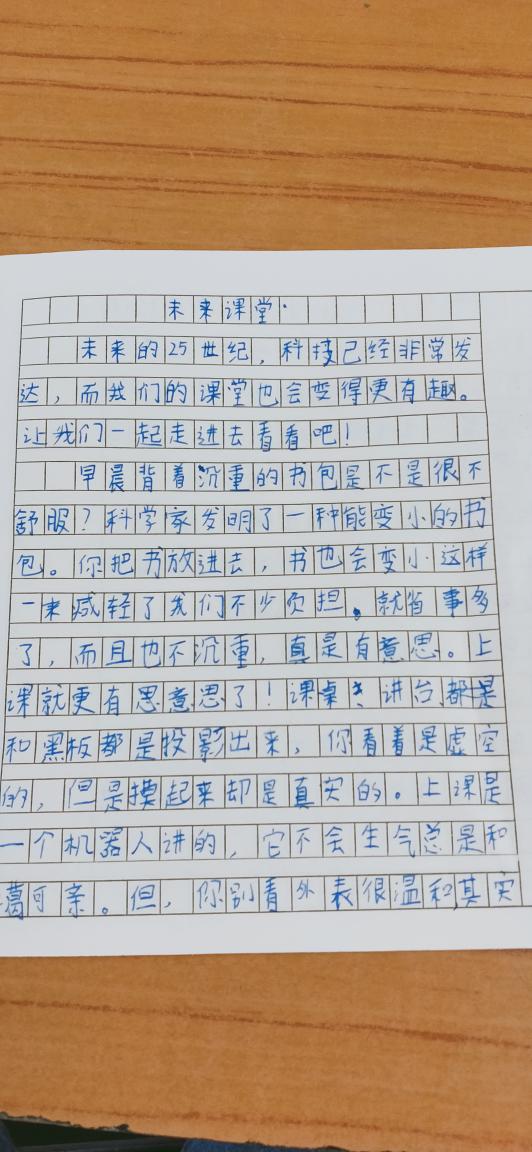 未来课堂.
未来的25世纪，科技已经非常发
达，而我们的课堂也会变得更有趣。
让我们一起走进去看看吧！
早晨背着沉重的书包是不是很不
舒服？科学家发明了一种能变小的书
包。你把书放进去，书也会变小这样
一来减轻了我们不少负担。就省事多
了，而且也不沉重，真是有意思。上
课就更有思意思了！课桌、讲台都是
和黑板都是投影出来，你看着是虚空
的，但是摸起来却是真实的。上课是
一个机器人讲的，它不会生气总是和
蔼可亲。但，你别看外表很温和其实